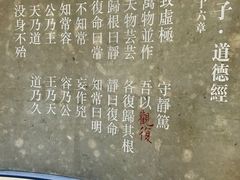 子・道德經
十六章
致虛極 守靜篤
萬物並作 吾以觀復
夫物芸芸 各復歸其根
歸根曰靜 靜曰復命
復命曰常 知常曰明
不知常 妄作凶
知常容 容乃公
公乃王 王乃天
天乃道 道乃久
没身不殆